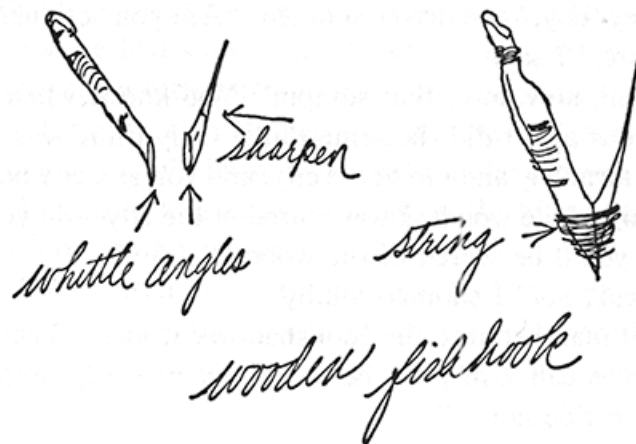 sharpen
whittle angles
string
wooden fish hook